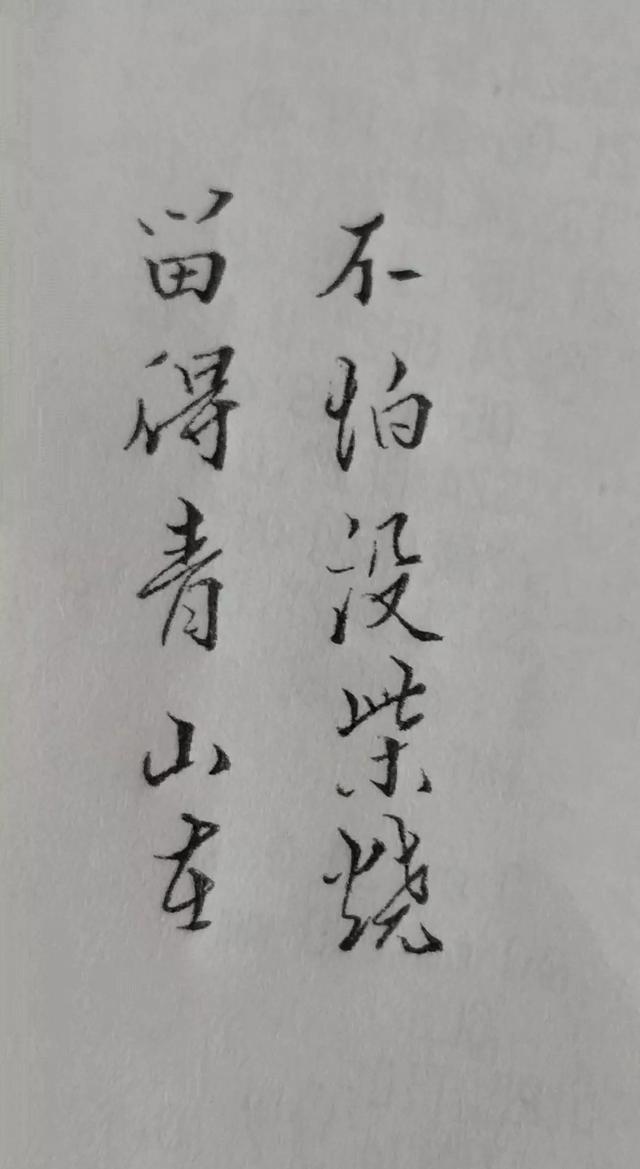 留得青山在
不怕没柴烧